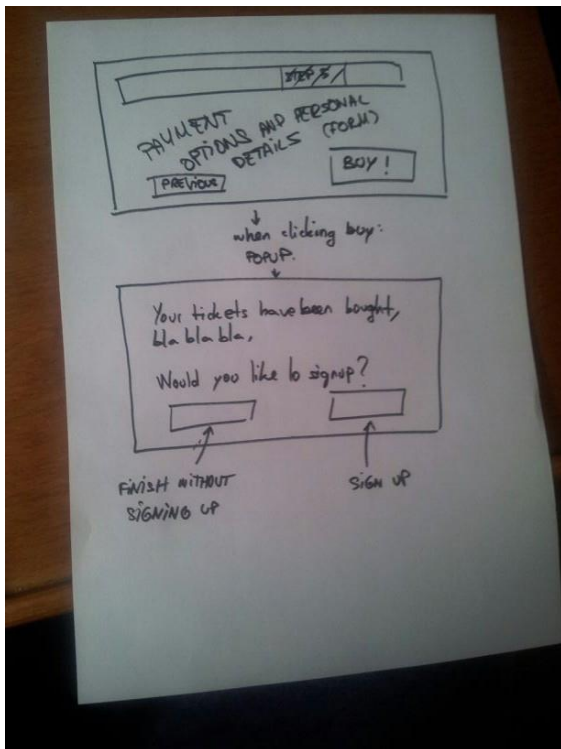 STEP 3
PAYMENT
OPTIONS AND PERSONAL
DETAILS (FORM)
PREVIOUS
BUY!
when clicking buy:
POPUP.
Your tickets have been bought,
bla bla bla,
Would you like to signup?
FINISH WITHOUT
SIGNING UP
SIGN UP